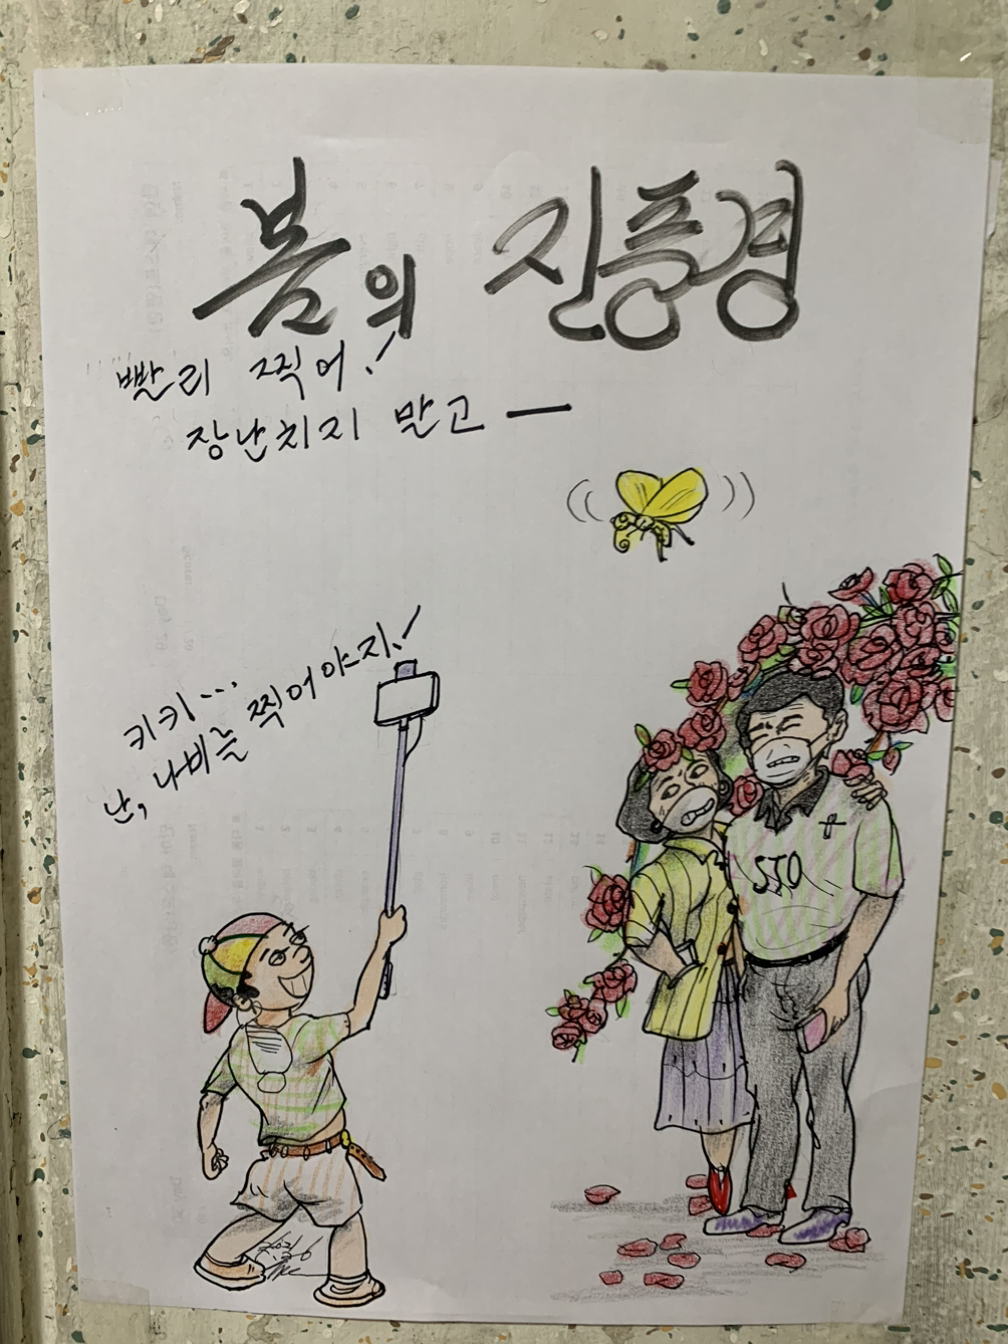 봄의 진풍경
빨리 찍어!
장난치지 말고 —
키키...
난, 나비를 찍어야지!
STO